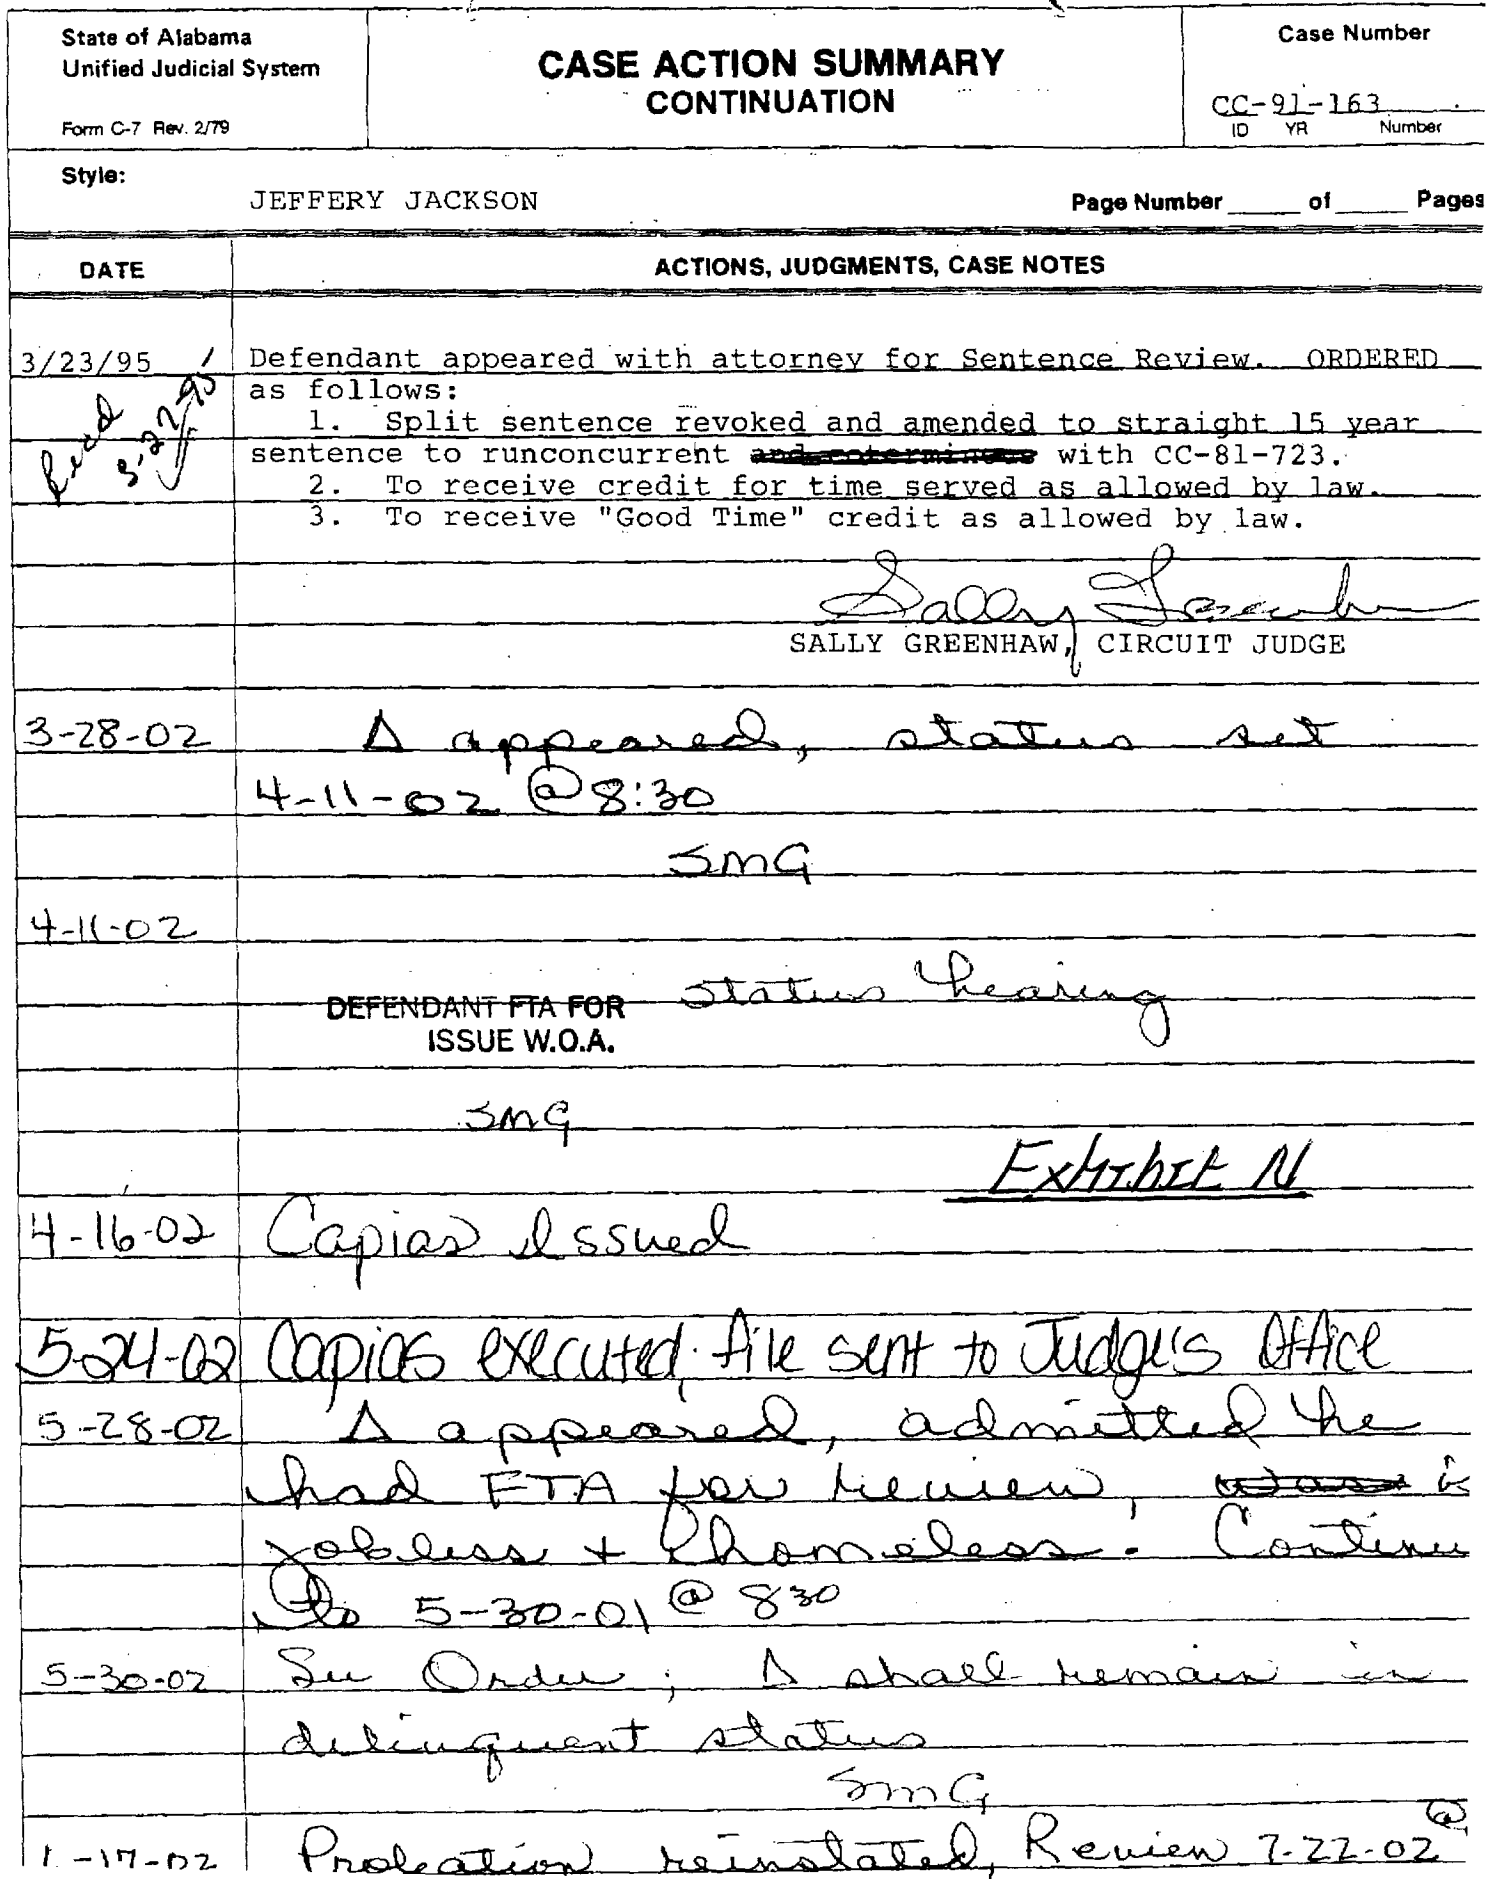 State of Alabama
Unified Judicial System
Form C-7 Rev. 2/79
CASE ACTION SUMMARY
CONTINUATION
Case Number
CC-91-163
ID YR Number
Style:
JEFFERY JACKSON
Page Number _____ of _____ Pages
DATE
ACTIONS, JUDGMENTS, CASE NOTES
3/23/95 Defendant appeared with attorney for Sentence Review. ORDERED
as follows:
1. Split sentence revoked and amended to straight 15 year
sentence to runconcurrent and coterminous with CC-81-723.
2. To receive credit for time served as allowed by law.
3. To receive "Good Time" credit as allowed by law.
SALLY GREENHAW, CIRCUIT JUDGE
3-28-02 Δ appeared, status set
4-11-02 @ 8:30
SMG
4-11-02
DEFENDANT FTA FOR status hearing
ISSUE W.O.A.
SMG
Exhibit N
4-16-02 Capias Issued
5-24-02 Capias executed; file sent to Judge's Office
5-28-02 Δ appeared, admitted he
had FTA for review, is
jobless + homeless. Continue
to 5-30-01 @ 8 30
5-30-02 See Order; Δ shall remain in
delinquent status
SMG
-17-02 Probation reinstated, Review 7-22-02 @